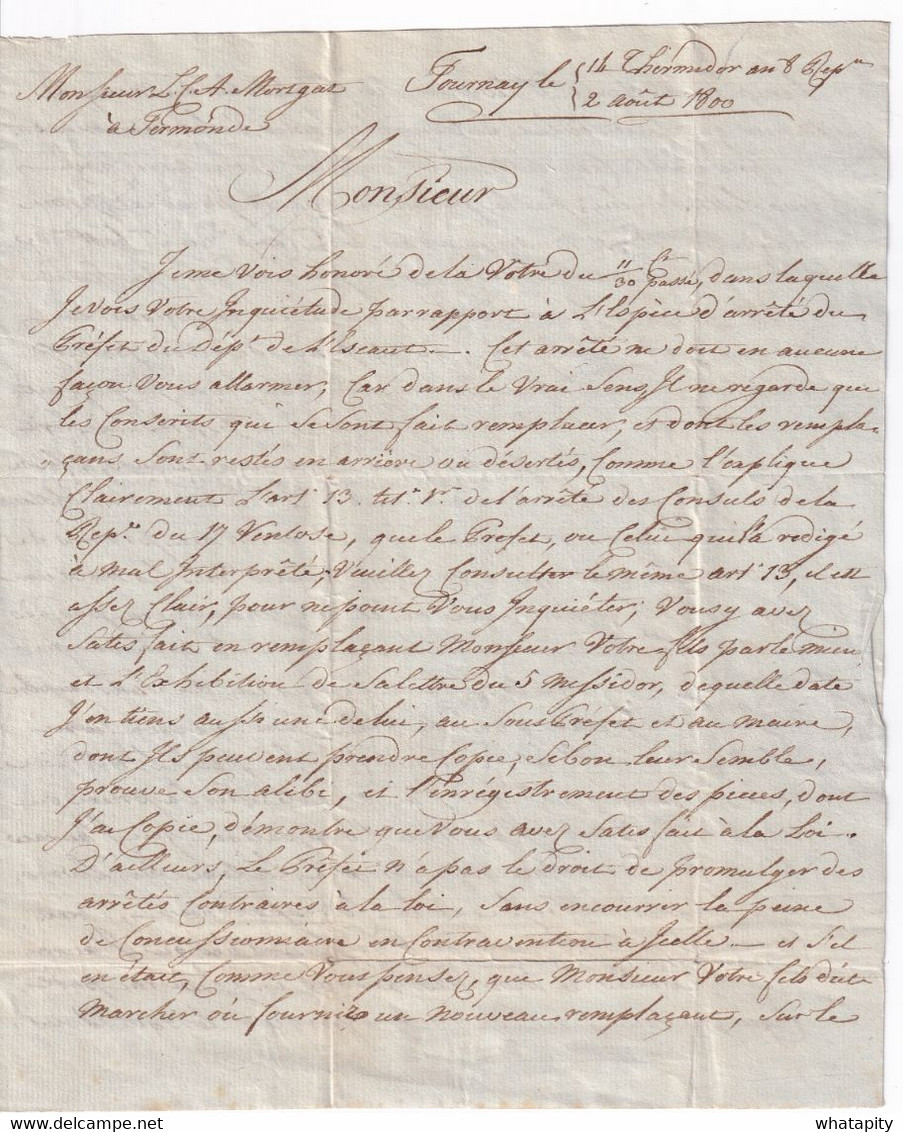 Monsieur L. C. A. Mortgat
à Termonde
Tournay le { 14 Thermidor an 8 Repne
2 août 1800
Monsieur
Je me vois honoré de la Votre du 11/30 passé, dans laquelle
Je vois Votre Inquiétude par rapport à L'Espèce d'arrêté du
Préfet du Dépt de L'Escaut. Cet arrêté ne doit en aucune
façon Vous allarmer, Car dans le Vrai Sens, Il ne regarde que
les Conscrits qui se Sont fait remplacer, et dont les rempla-
„ çans Sont restés en arrière ou désertés, Comme l'explique
Clairement L'art. 13. tit. 1r de l'arrêté des Consuls de la
Repe du 17 Ventose, que le Préfet, ou Celui qui l'a redigé
à mal Interprêté; Vuillez Consulter le même art. 13, il est
assez Clair, pour ne point Vous Inquiéter; Vous y avez
Satisfait en remplaçant Monsieur Votre fils par le mien
et L'Exhibition de Sa lettre du 5 Messidor, de quelle date
J'en tiens aussi une de lui, au Sous Préfet et au maire,
dont Ils peuvent prendre Copie, Si bon leur Semble,
prouve Son alibi, et l'enrégistrement des pieces, dont
J'ai Copie, démontre que Vous avez Satisfait à la Loi.
D'ailleurs, Le Préfet n'a pas le droit de promulger des
arrêtés Contraires à la loi, Sans encourrir la peine
de Concussionnaire en Contravention à Icelle — et S'il
en était, Comme Vous pensez, que Monsieur Votre fils dût
Marcher où fournir un nouveau remplaçant, Sur le
whatapity